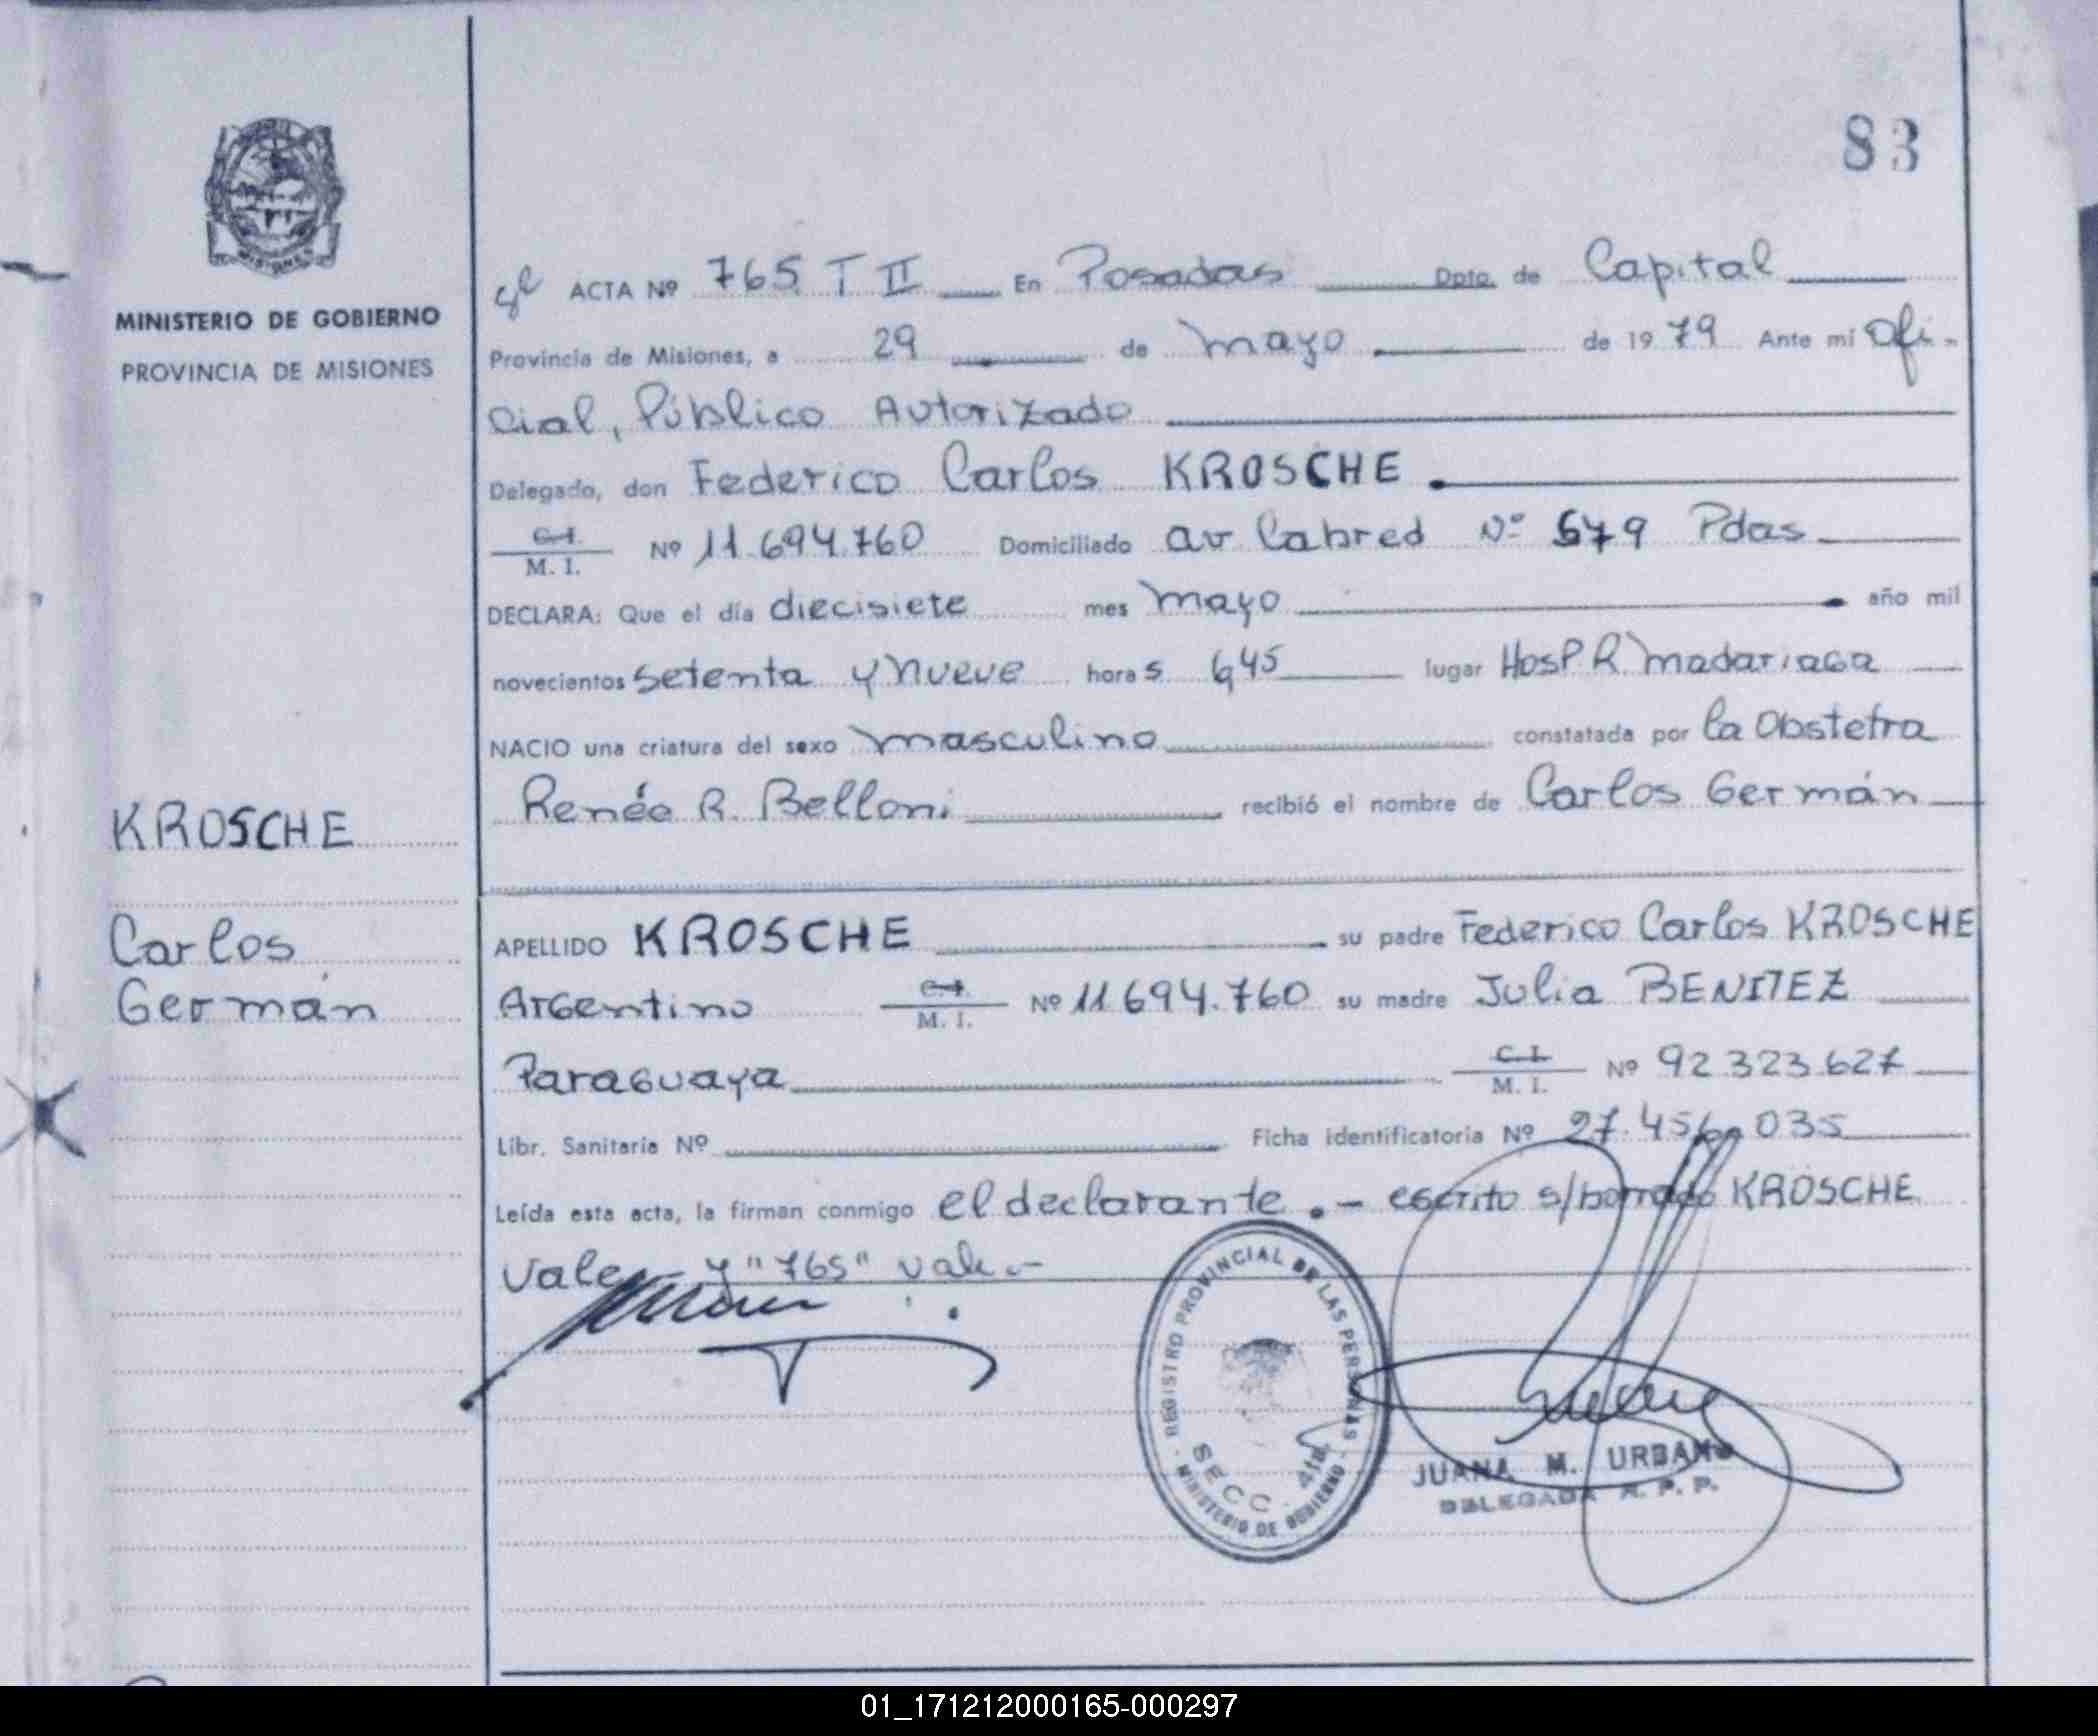 83
MISIONES
MINISTERIO DE GOBIERNO
PROVINCIA DE MISIONES
ACTA Nº 765 T II En Posadas Dpto. de Capital
Provincia de Misiones, a 29 de mayo de 1979 Ante mi Ofi-
cial, Público Autorizado
Delegado, don Federico Carlos KROSCHE.
C.I.
M. I. Nº 11.694.760 Domiciliado av Cabred Nº 579 Pdas
DECLARA: Que el día diecisiete mes mayo año mil
novecientos setenta y nueve horas 6,45 lugar Hosp R. Madariaga
NACIO una criatura del sexo masculino constatada por la Obstetra
Renée R. Belloni recibió el nombre de Carlos Germán
KROSCHE
Carlos
Germán
APELLIDO KROSCHE su padre Federico Carlos KROSCHE
Argentino C.I.
M. I. Nº 11694.760 su madre Julia BENITEZ
Paraguaya C.I.
M. I. Nº 92.323.627
Libr. Sanitaria Nº Ficha identificatoria Nº 27.456.035
Leída esta acta, la firman conmigo el declarante.- escrito s/borrado KROSCHE
Vale y "765" vale.-
REGISTRO PROVINCIAL DE LAS PERSONAS
SECC. 4ta
MINISTERIO DE GOBIERNO
JUANA M. URBANO
DELEGADA R. P. P.
01_171212000165-000297